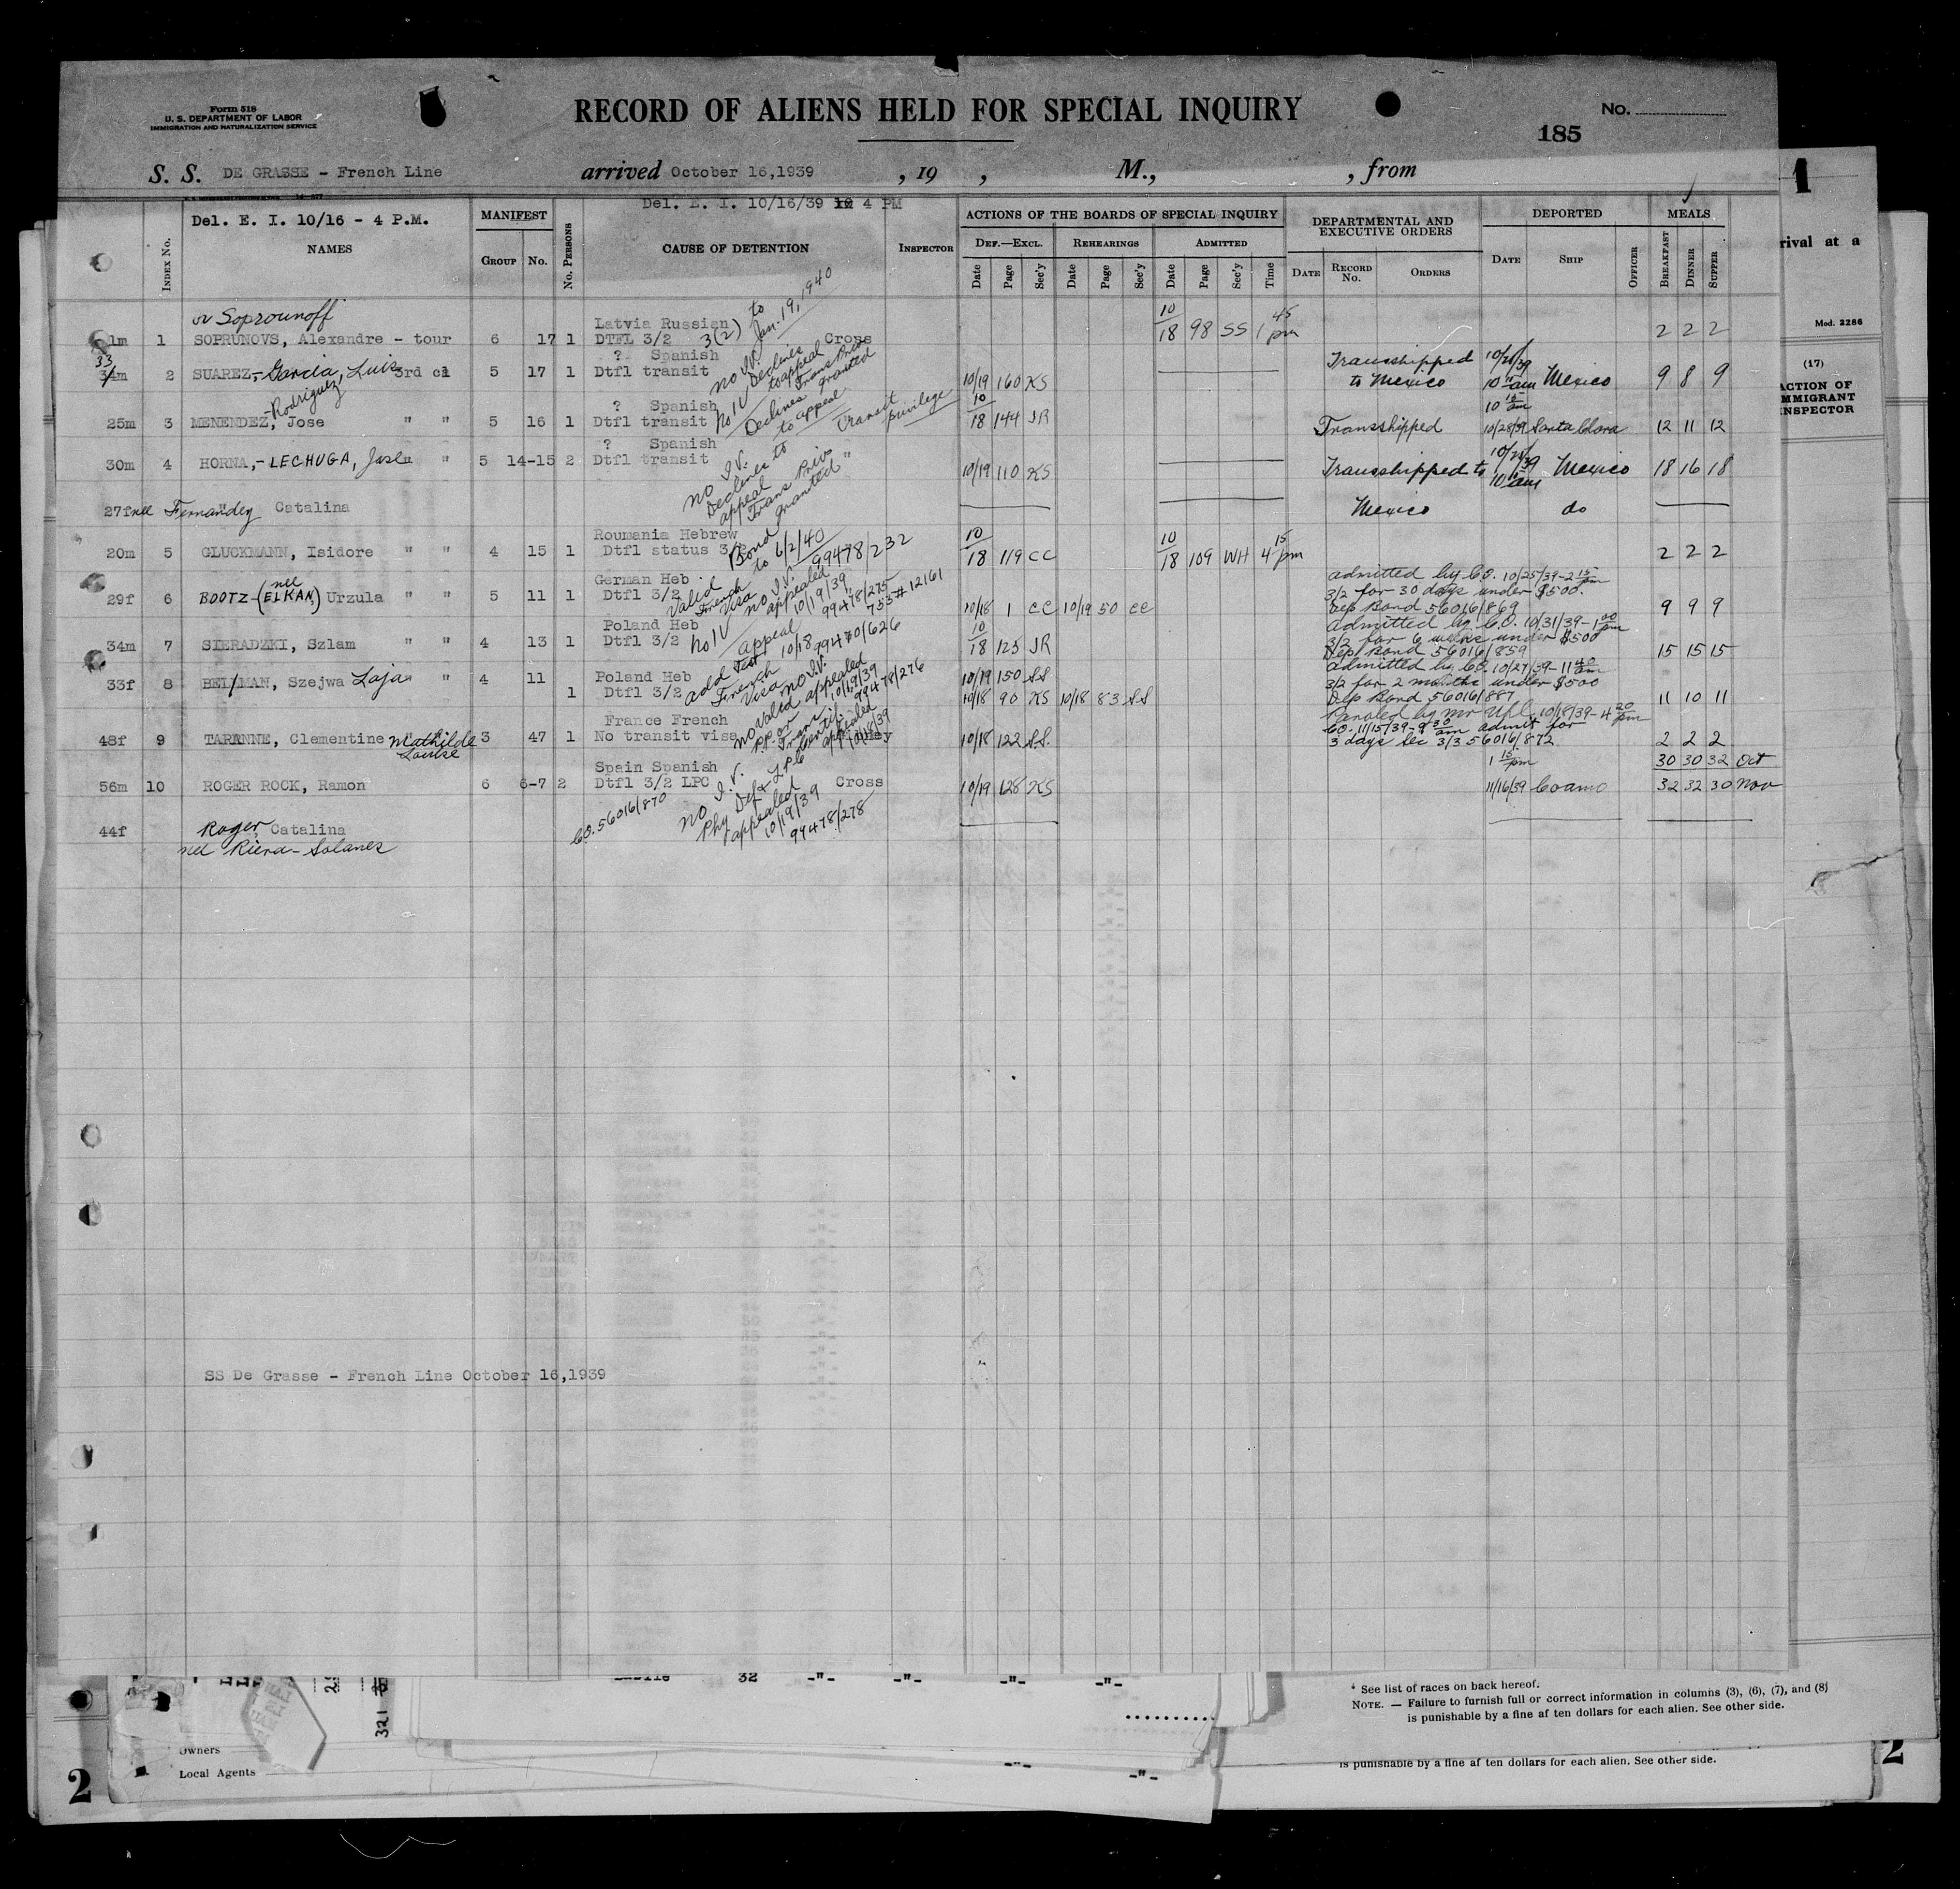 Form 518
U. S. DEPARTMENT OF LABOR
IMMIGRATION AND NATURALIZATION SERVICE
RECORD OF ALIENS HELD FOR SPECIAL INQUIRY
No.
185
S. S. DE GRASSE - French Line arrived October 16,1939 , 19 , M., , from
1
Del. E. I. 10/16 - 4 P.M.
Del. E. I. 10/16/39 4 PM
INDEX No. NAMES MANIFEST GROUP No. No. PERSONS CAUSE OF DETENTION INSPECTOR
ACTIONS OF THE BOARDS OF SPECIAL INQUIRY
DEF.—EXCL. REHEARINGS ADMITTED
Date Page Sec'y Date Page Sec'y Date Page Sec'y Time
DEPARTMENTAL AND EXECUTIVE ORDERS
DATE RECORD No. ORDERS
DEPORTED
DATE SHIP OFFICER
MEALS
BREAKFAST DINNER SUPPER
rival at a
Mod. 2286
(17)
ACTION OF
IMMIGRANT
INSPECTOR
or Soprounoff
Latvia Russian
1m 1 SOPRUNOVS, Alexandre - tour 6 17 1 DTFL 3/2 3(2) to Jan. 19, 1940 Cross 10/18 98 SS 1 45 pm 2 2 2
? Spanish
33
34m 2 SUAREZ,- Garcia, Luis 3rd cl 5 17 1 Dtfl transit no I.V. Declines to appeal Trans Priv granted 10/19 160 KS Transshipped to Mexico 10/21/39 10 am Mexico 9 8 9
-Rodriguez
? Spanish
25m 3 MENENDEZ, Jose " " 5 16 1 Dtfl transit no IV Declines to appeal Transit privilege 10/18 144 JR Transshipped 10 15 am 10/28/39 Santa Clara 12 11 12
? Spanish
30m 4 HORNA,- LECHUGA, Jose " " 5 14-15 2 Dtfl transit no I.V. Declines to appeal Trans Priv granted" 10/19 110 KS Transshipped to Mexico 18 16 18
27f nee Fernandez Catalina Mexico do
Roumania Hebrew
20m 5 GLUCKMANN, Isidore " " 4 15 1 Dtfl status 3/2 Bond to 6/2/40 99478/232 10/18 119 CC 10/18 109 WH 4 15 pm 2 2 2
German Heb
29f 6 BOOTZ-(nee ELKAN) Urzula " " 5 11 1 Dtfl 3/2 Valid French Visa no I.V. appealed 10/19/39 99478/275 755#12161 10/18 1 CC 10/19 50 CC
admitted by CO. 10/25/39-2 15 pm
3/2 for 30 days under $500.
Dep Bond 56016/869 9 9 9
Poland Heb
34m 7 SIERADZKI, Szlam " " 4 13 1 Dtfl 3/2 no IV appeal 10/18 99470/626 10/18 125 JR
admitted by CO. 10/31/39-1 00 pm
3/2 for 6 weeks under $500
Dep Bond 56016/859 15 15 15
Poland Heb
33f 8 Szejwa Laja " " 4 11 1 Dtfl 3/2 add French Visa no I.V. appealed 10/19/39 99478/276 10/19 150 SS
10/18 90 KS 10/18 83 SS
admitted by CO. 10/27/39-11 40 am
3/2 for 2 months under $500
Dep Bond 56016/887 11 10 11
France French
48f 9 TARANNE, Clementine Mathilde Louise 3 47 1 No transit visa no valid pp or Trans Certif. appealed 10/18/39 10/18 122 SS
Paroled by Mr Uhl 10/18/39-4 20 pm
CO. 11/15/39-9 30 am admit for
3 days Sec 3/3 56016/872 2 2 2
Spain Spanish
56m 10 ROGER ROCK, Ramon 6 6-7 2 Dtfl 3/2 LPC Cross 10/19 128 KS 1 15 pm 11/16/39 Coamo
30 30 32 Oct
32 32 30 Nov
CO. 56016/870
no I. V. Phy Def + LPC appealed 10/19/39 99478/278
44f Roger, Catalina
nee Riera-Solanes
SS De Grasse - French Line October 16,1939
32 -"- -"- -"- -"-
321
* See list of races on back hereof.
NOTE. — Failure to furnish full or correct information in columns (3), (6), (7), and (8)
is punishable by a fine af ten dollars for each alien. See other side.
Owners
Local Agents
-"-
-"-
is punishable by a fine af ten dollars for each alien. See other side.
2
2